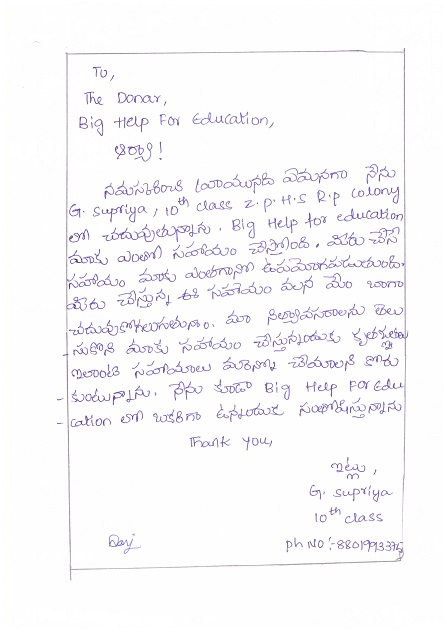 To,
The Donar,
Big Help For Education,
ఆర్యా!
నమస్కరించి వ్రాయునది ఏమనగా నేను
G. Supriya, 10th class Z.P.H.S R.P colony
లో చదువుతున్నాను. Big Help for education
మాకు ఎంతో సహాయం చేస్తోంది. మీరు చేసే
సహాయం మాకు ఎంతగానో ఉపయోగపడుతుంది.
మీరు చేస్తున్న ఈ సహాయం వలన మేం బాగా
చదువుకోగలుగుతున్నాం. మా నిత్యావసరాలను తెలు
సుకొని మాకు సహాయం చేస్తున్నందుకు కృతజ్ఞతలు
ఇలాంటి సహాయాలు మరెన్నో చేయాలని కోరు
కుంటున్నాను. నేను కూడా Big Help For Edu
cation లో ఒకరిగా ఉన్నందుకు సంతోషిస్తున్నాను
Thank you,
ఇట్లు,
G. Supriya
10th class
Ph No :-